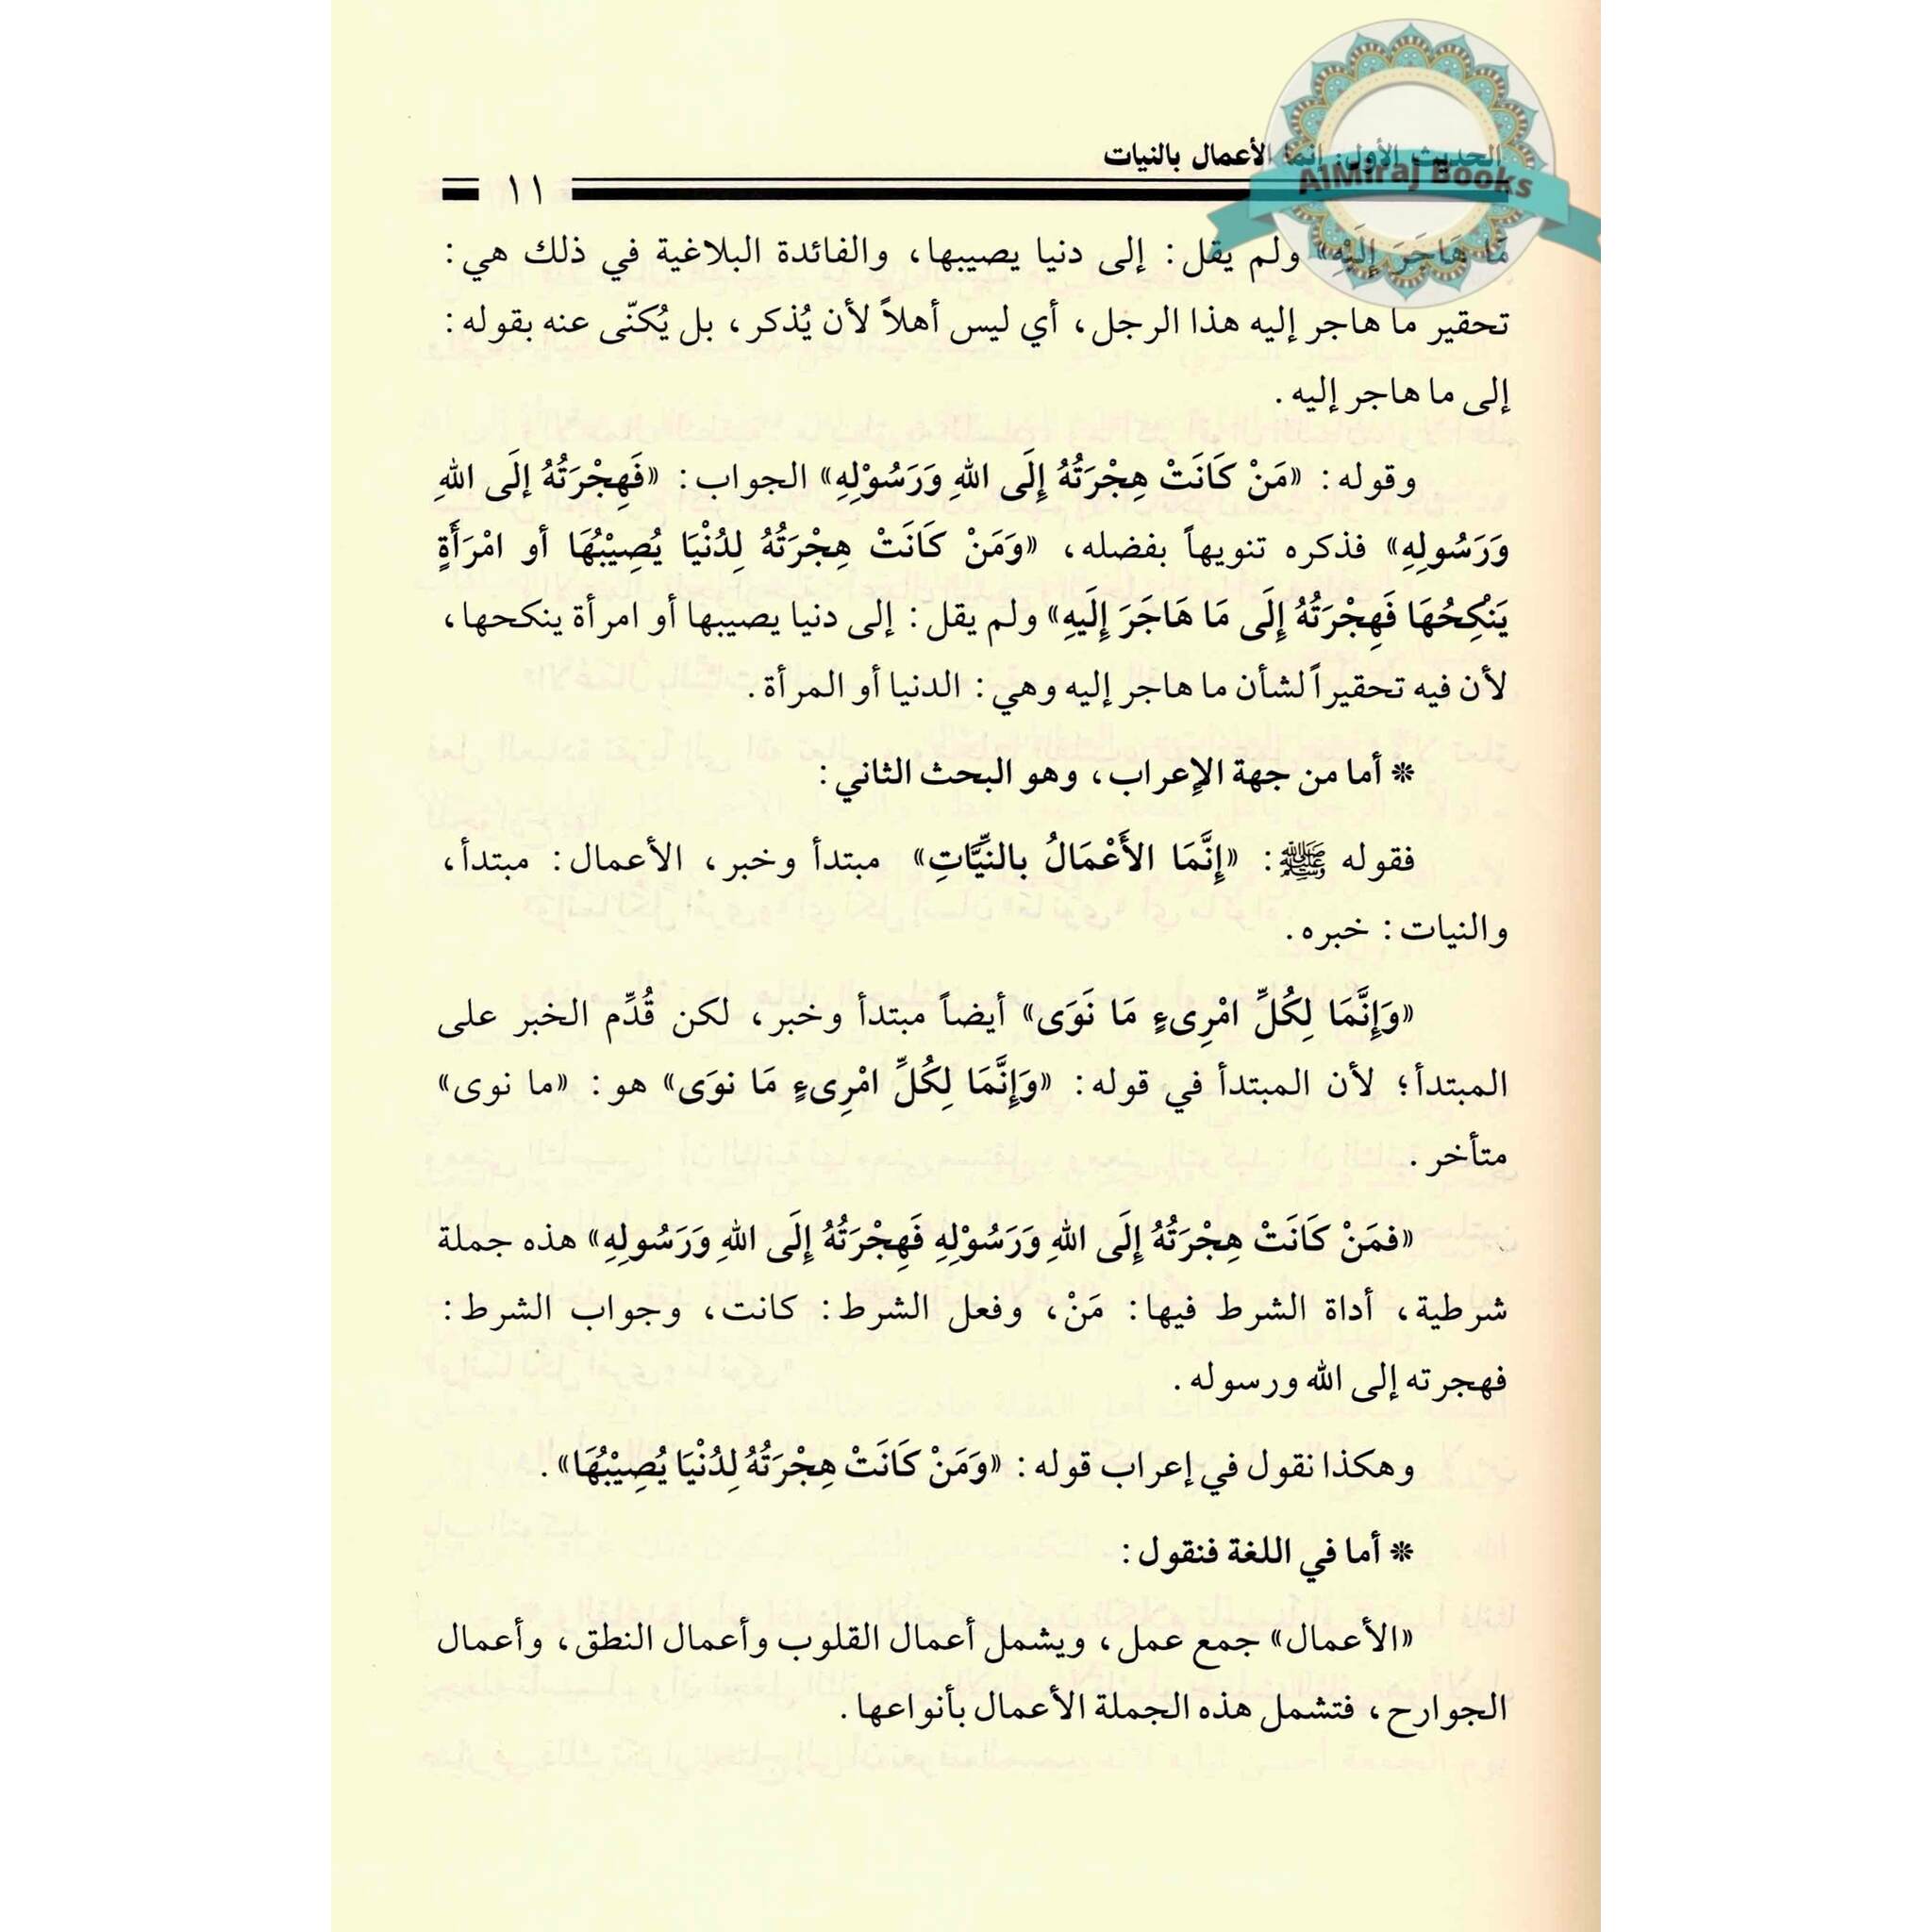 الحديث الأول: إنما الأعمال بالنيات
AlMiraj Books
١١
مَا هَاجَرَ إِلَيْهِ» ولم يقل: إلى دنيا يصيبها، والفائدة البلاغية في ذلك هي:
تحقير ما هاجر إليه هذا الرجل، أي ليس أهلاً لأن يُذكر، بل يُكنّى عنه بقوله:
إلى ما هاجر إليه.
وقوله: «مَنْ كَانَتْ هِجْرَتُهُ إِلَى اللهِ وَرَسُوْلِهِ» الجواب: «فَهِجْرَتُهُ إلَى اللهِ
وَرَسُولِهِ» فذكره تنويهاً بفضله، «وَمَنْ كَانَتْ هِجْرَتُهُ لِدُنْيَا يُصِيْبُهَا أو امْرَأَةٍ
يَنْكِحُهَا فَهِجْرَتُهُ إِلَى مَا هَاجَرَ إِلَيهِ» ولم يقل: إلى دنيا يصيبها أو امرأة ينكحها،
لأن فيه تحقيراً لشأن ما هاجر إليه وهي: الدنيا أو المرأة.
* أما من جهة الإعراب، وهو البحث الثاني:
فقوله ﷺ: «إِنَّمَا الأَعْمَالُ بالنيَّاتِ» مبتدأ وخبر، الأعمال: مبتدأ،
والنيات: خبره.
«وَإِنَّمَا لِكُلِّ امْرِىءٍ مَا نَوَى» أيضاً مبتدأ وخبر، لكن قُدِّم الخبر على
المبتدأ؛ لأن المبتدأ في قوله: «وَإِنَّمَا لِكُلِّ امْرِىءٍ مَا نوَى» هو: «ما نوى»
متأخر.
«فمَنْ كَانَتْ هِجْرَتُهُ إِلَى اللهِ وَرَسُوْلِهِ فَهِجْرَتُهُ إِلَى اللهِ وَرَسُولِهِ» هذه جملة
شرطية، أداة الشرط فيها: مَنْ، وفعل الشرط: كانت، وجواب الشرط:
فهجرته إلى الله ورسوله.
وهكذا نقول في إعراب قوله: «وَمَنْ كَانَتْ هِجْرَتُهُ لِدُنْيَا يُصِيْبُهَا».
* أما في اللغة فنقول:
«الأعمال» جمع عمل، ويشمل أعمال القلوب وأعمال النطق، وأعمال
الجوارح، فتشمل هذه الجملة الأعمال بأنواعها.